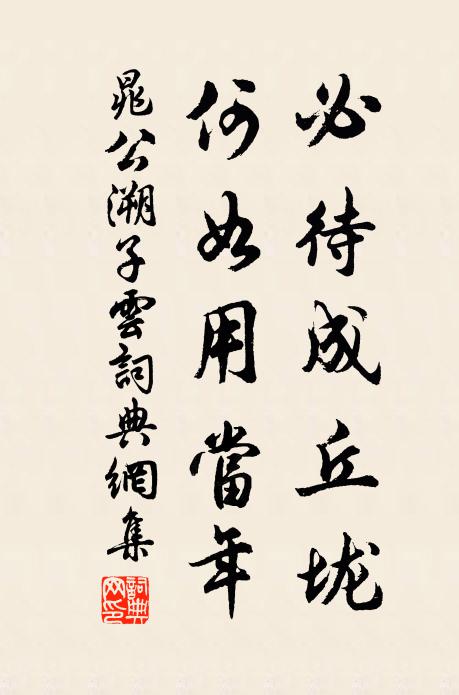 必待成丘垅
何如用當年
晁公溯子雲詞典網集
詞典网印